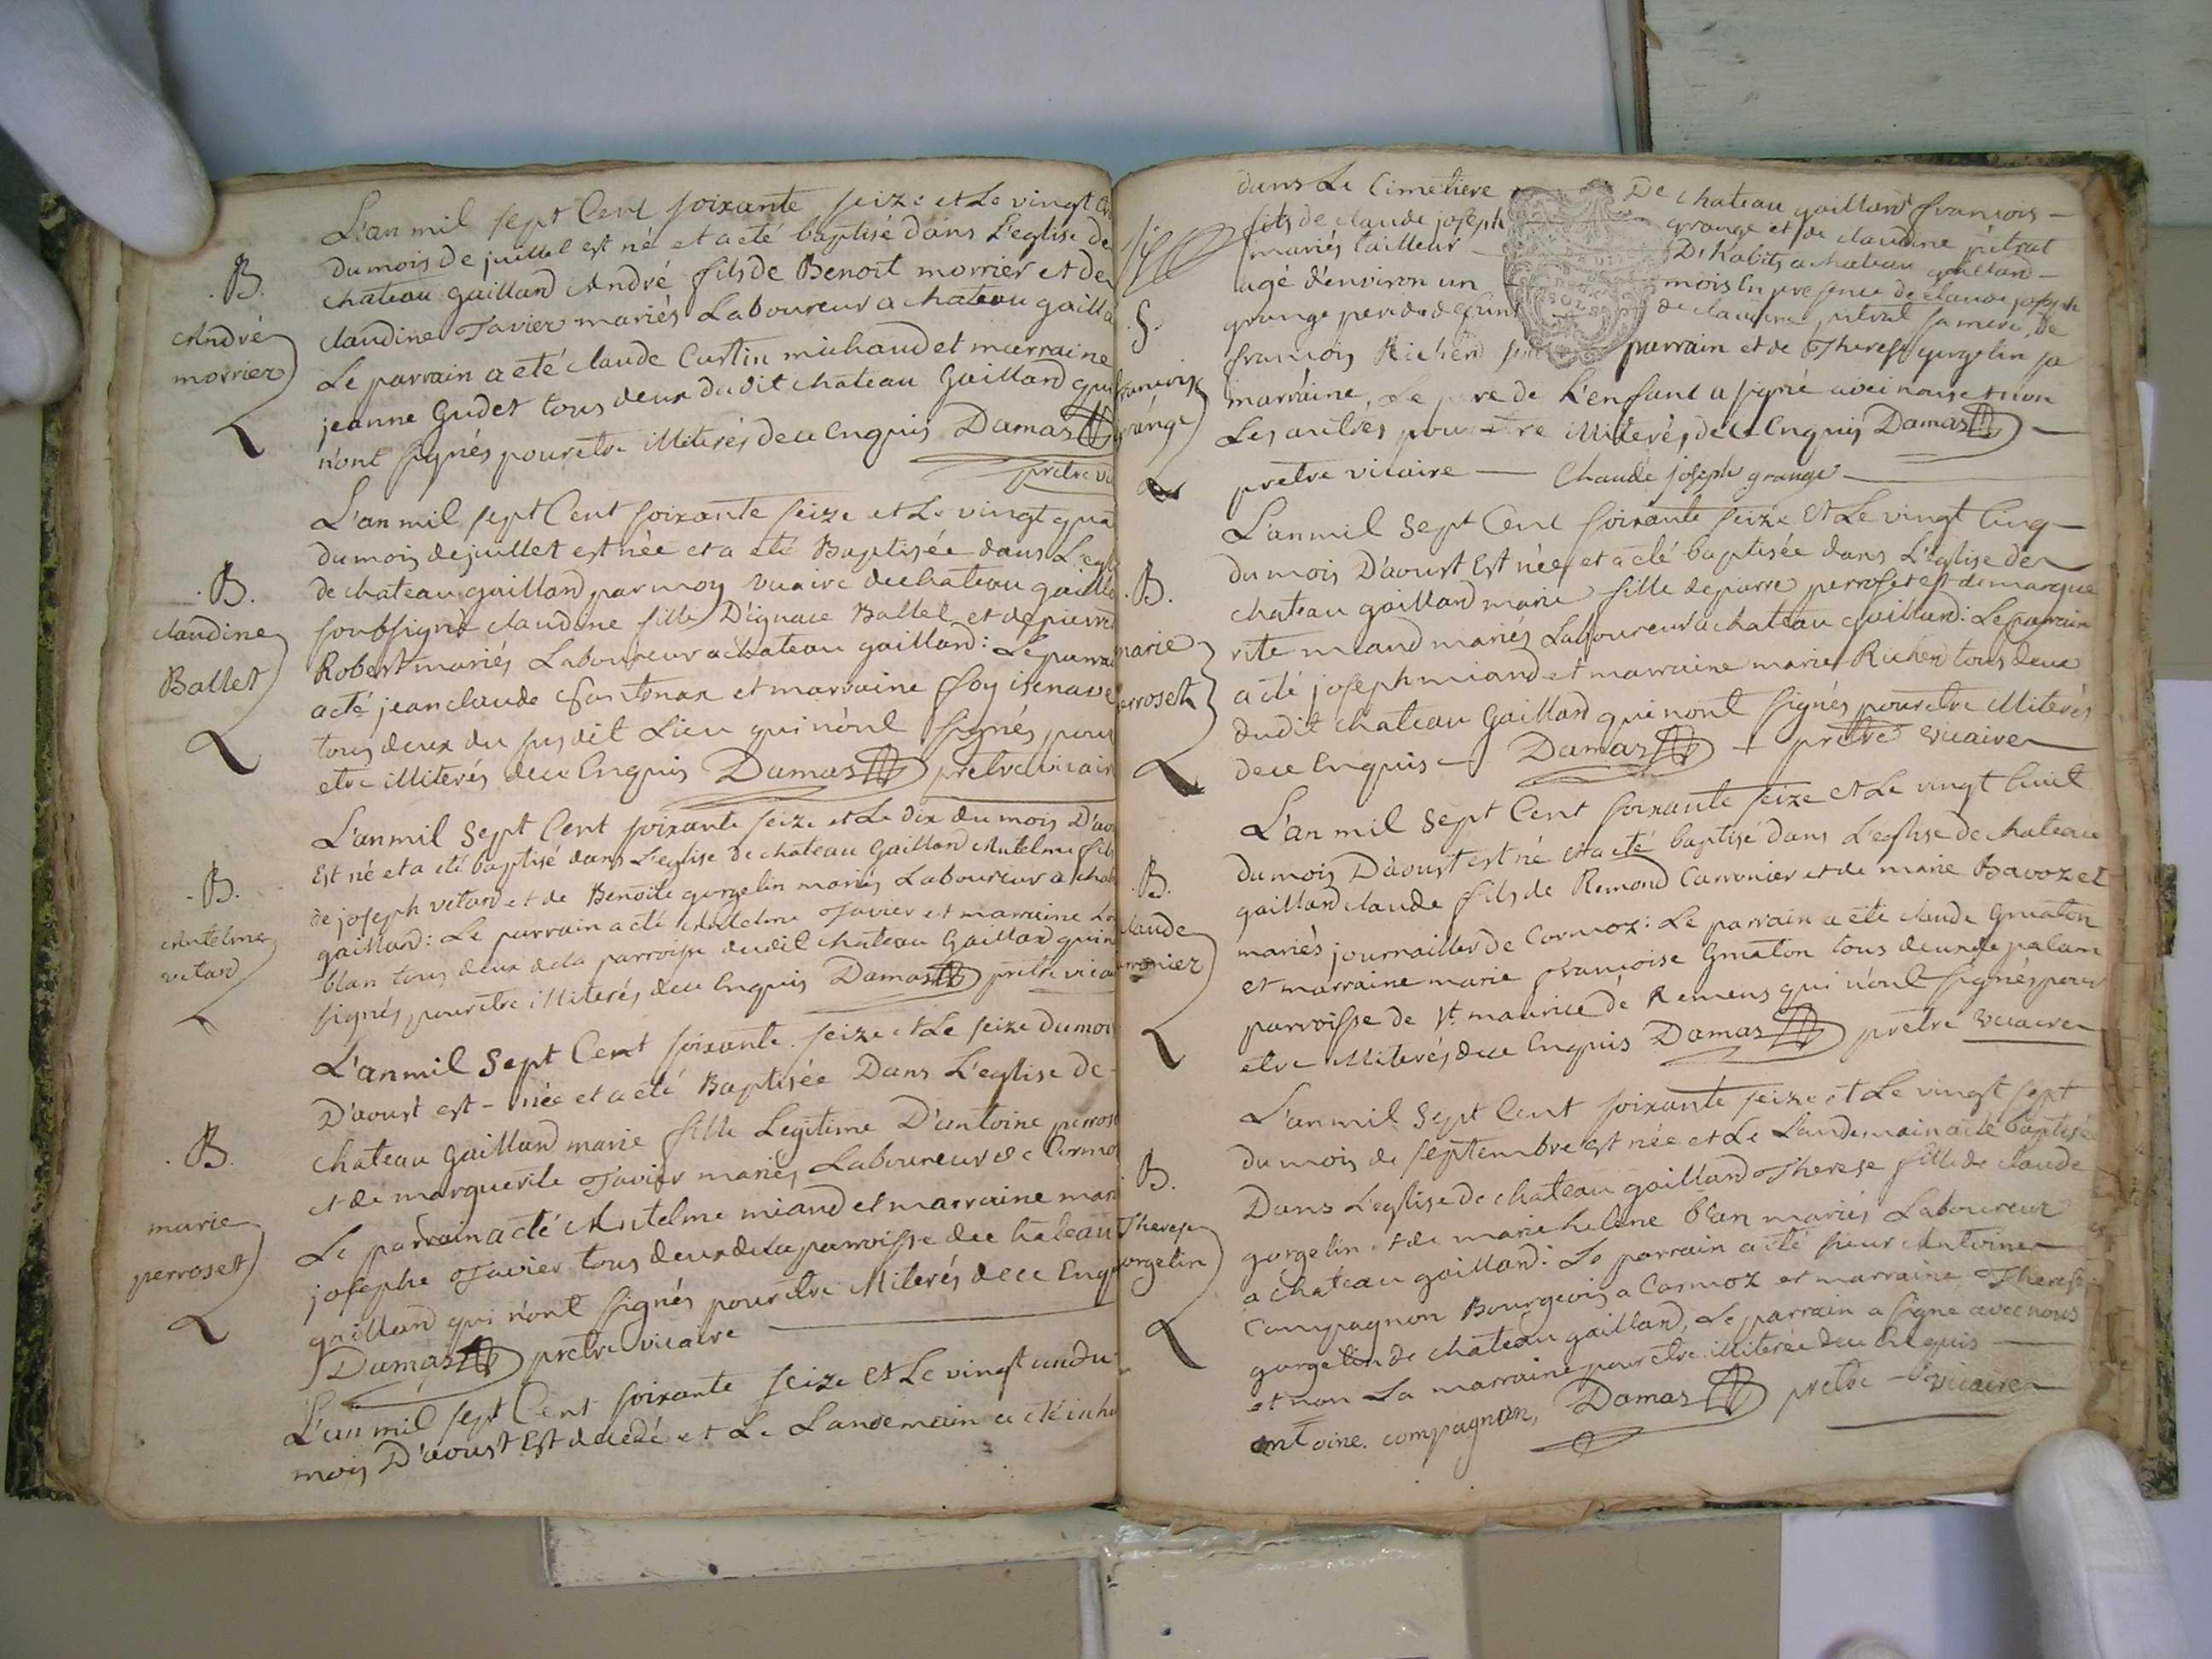 L'an mil sept Cent soixante seize et Le vingt
du mois de juillet est né et a eté baptisé dans L'eglise de
chateau gaillard André fils de Benoit morrier et de
claudine Tavier mariés Laboureur a chateau gailla
Le parrain a eté claude Curtin michaud et marraine
jeanne Gudet tous deux dudit chateau Gaillard qui
n'ont signés pour etre illiterés de ce Enquis Damas
pretre vi
.B.
André
morrier
L'an mil sept Cent soixante seize et Le vingt qua
du mois de juillet est née et a eté Baptisée dans L'egl
de chateau gaillard par moy vicaire de chateau gailla
soubsigné claudine fille D'ignace Ballet et de pierre
Robert mariés Laboureur a chateau gaillard: Le parra
a eté jean claude fontonax et marraine foy isenave
tous deux du susdit Lieu qui n'ont signés pour
etre illiterés de ce Enquis Damas pretre vicair
.B.
claudine
Ballet
L'an mil Sept Cent soixante seize et Le dix du mois D'ao
Est né et a eté baptisé dans L'eglise de chateau Gaillard Antelme fils
de joseph vetard et de Benoite gorgelin mariés Laboureur a chat
gaillard: Le parrain a eté Antelme Tavier et marraine
blan tous deux de la parroisse dudit chateau Gaillard qui n
signés, pour etre illiterés de ce Enquis Damas pretre vica
.B.
Antelme
vetard
L'an mil Sept Cent soixante seize et Le seize du moi
D'aoust est - née et a eté Baptisée Dans L'eglise de
chateau Gaillard marie fille Legitime D'antoine perros
et de marguerite Tavier mariés Laboureur de Cormo
Le parrain a eté Antelme miand et marraine mari
josephe Tavier tous deux de La parroisse de chateau
gaillard qui n'ont signés pour etre illiterés de ce Enqu
Damas pretre vicaire
.B.
marie
perroset
L'an mil sept Cent soixante seize et Le vingt un du
mois D'aoust Est decédé et Le Landemain a eté inhu
dans Le Cimetiere De chateau gaillard francois
fils de claude joseph grange et de claudine pitrat
mariés tailleur D'habits a chateau gaillard
agé d'environ un mois En presence de claude joseph
grange pere du defunt de claudine pitrat sa mere, de
francois Richerd son parrain et de Therese gorgelin sa
marraine, Le pere de L'enfant a signé avec nous et non
Les autres pour etre illiterés de ce Enquis Damas
pretre vicaire Claude joseph grange
.S.
francois
grange
L'an mil Sept Cent soixante seize Et Le vingt Cinq
du mois D'aoust Est née et a eté baptisée dans L'eglise de
chateau gaillard marie fille de pierre perroset et de margue
rite miand mariés Laboureur a chateau gaillard: Le parrain
a eté joseph miand et marraine marie Richerd tous deux
dudit chateau Gaillard qui n'ont signés pour etre illiterés
de ce Enquis Damas pretre vicaire
.B.
marie
erroset
L'an mil Sept Cent soixante seize et Le vingt huit
du mois D'aoust est né et a eté baptisé dans L'eglise de chateau
gaillard claude fils de Remond Carronier et de marie Bavozet
mariés journaillier de Cormoz: Le parrain a eté claude Gruaton
et marraine marie francoise Gruaton tous deux de palam
parroisse de St. maurice de Remens qui n'ont signés pour
etre illiterés de ce Enquis Damas pretre vicaire
.B.
claude
rronier
L'an mil Sept Cent soixante seize et Le vingt sept
du mois de septembre est née et Le Landemain a eté baptisée
Dans L'eglise de chateau gaillard Therese fille de claude
gorgelin et de marie helene blan mariés Laboureur
a chateau gaillard: Le parrain a eté sieur Antoine
Compagnon Bourgeois a Cormoz et marraine Therese
gorgelin de chateau gaillard, Le parrain a signé avec nous
et non La marraine pour etre illiterée de ce Enquis
antoine. compagnon, Damas pretre vicaire
B.
Therese
orgelin